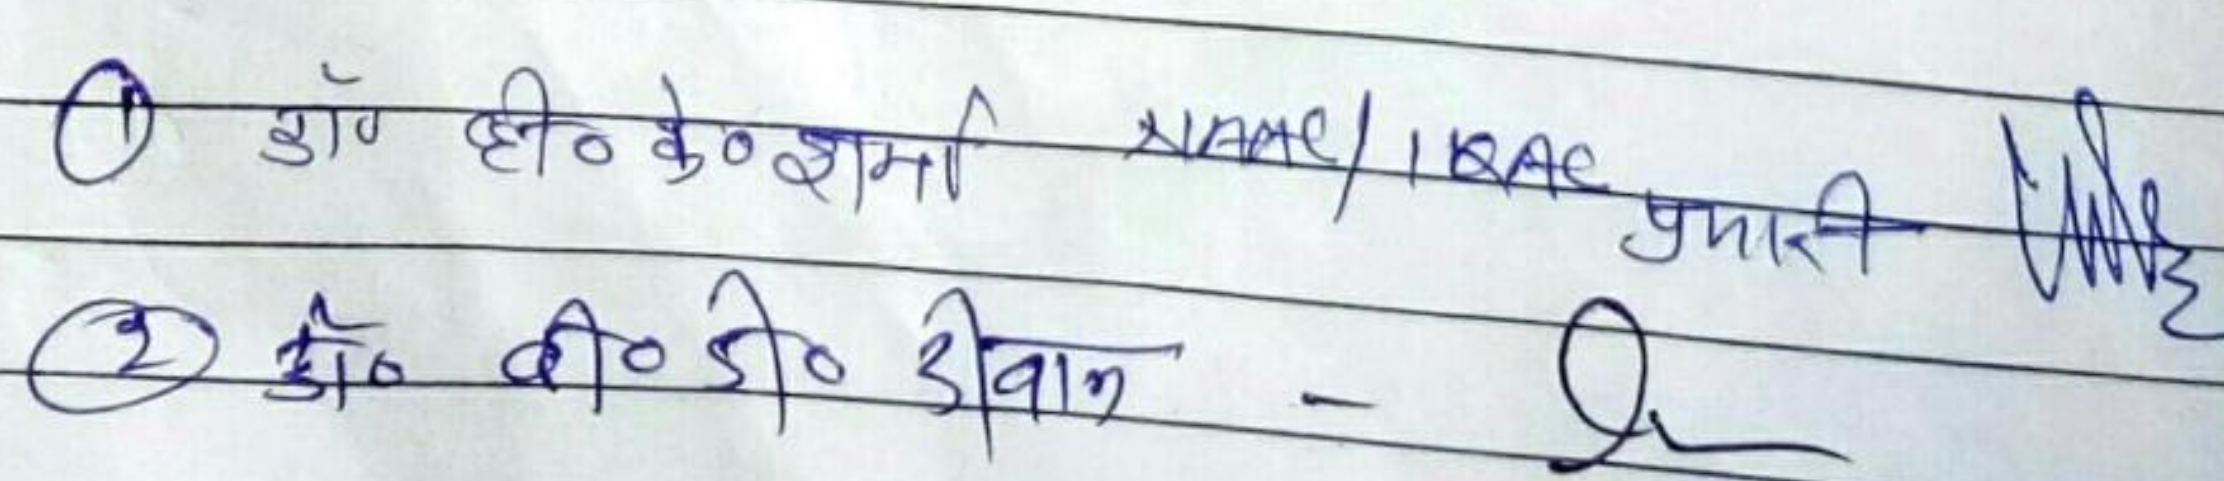 ① डॉ० व्ही० के० शर्मा NAAC/IQAC प्रभारी
② डॉ० वी० डी० दीवान -